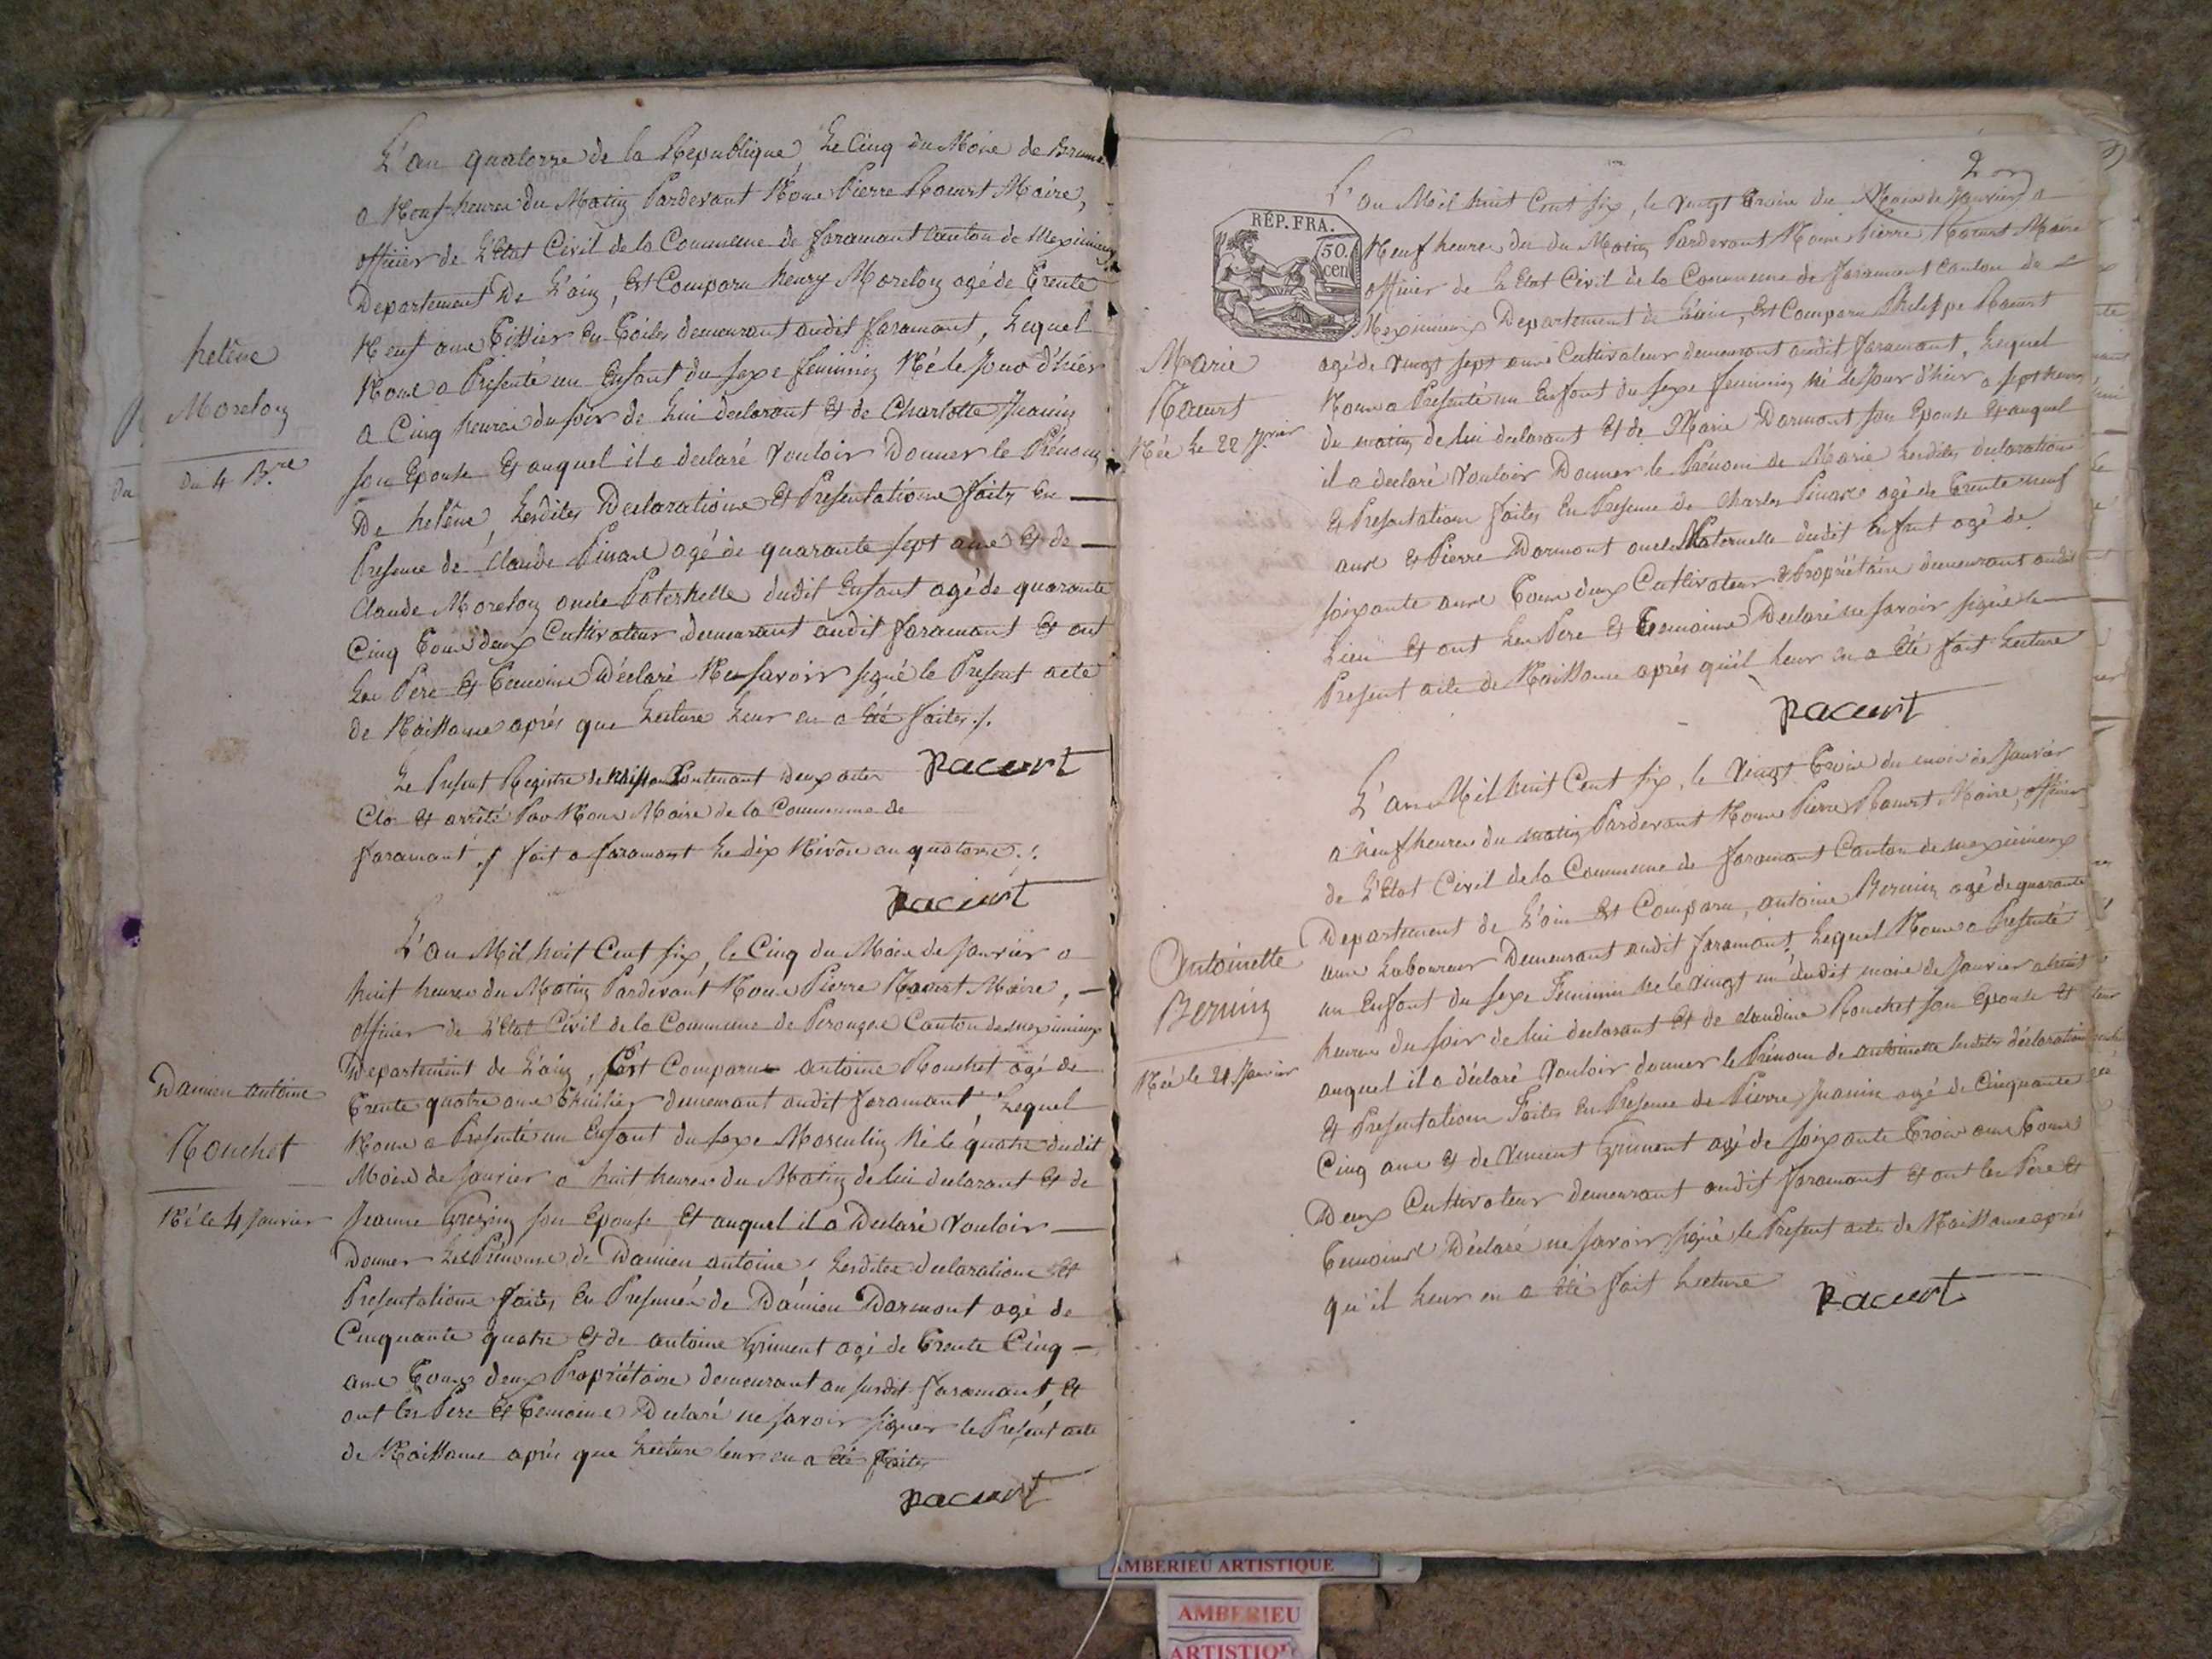 helêne
Moreloz
du 4 B.re
L'an quatorze de la Republique, Le Cinq du Mois de Brum
a Neuf heures du Matin Pardevant Nous Pierre Pacurt Maire,
officier de L'Etat Civil de la Commune de faramant Canton de Meximieux
Departement De L'ain, Est Comparu henry Moreloz agé de Trente
Neuf ans Tissier En Toiles demeurant audit faramant, Lequel
Nous a Presenté un Enfant du sexe feminin Né le Jour d'hier
a Cinq heures du soir de Lui declarant Et de Charlotte Juanin
son Epouse Et auquel il a declaré Vouloir Donner le Prénom
De helêne, Lesdites Declarations Et Presentations faites En
Presence de Claude Pinard agé de quarante sept ans Et de
Claude Moreloz oncle Paternelle dudit Enfant agé de quarante
Cinq Tous deux Cultivateur demeurant audit faramant Et ont
Les Pere Et Temoins Déclaré Ne savoir signé le Present acte
de Naissance aprés que Lecture Leur en a été faites ./.
Pacurt
Le Present Registre de Naissance Contenant deux actes
Clo Et arrêté Par Nous Maire de la Commune de
faramant ./ fait a faramant Le dix Nivôse an quatorze ./.
Pacurt
Damien antoine
Rouchet
Né le 4 Janvier
L'an Mil huit Cent six, le Cinq du Mois de Janvier a
huit heures du Matin Pardevant Nous Pierre Pacurt Maire,
officier de L'Etat Civil de la Commune de Perouges Canton de meximieux
Departement de L'ain, Est Comparu antoine Rouchet agé de
Trente quatre ans demeurant audit faramant, Lequel
Nous a Presenté un Enfant du sexe Masculin Né le quatre dudit
Mois de Janvier a huit heures du Matin de lui declarant Et de
Jeanne son Epouse, Et auquel il a Declaré Vouloir
Donner Les Prénoms de Damien antoine, Lesdites declarations Et
Presentations faites En Presence de Damien Darmont agé de
Cinquante quatre Et de antoine Griment agé de Trente Cinq
ans Tous deux Propriétaire demeurant au susdit faramant, Et
ont les Pere Et Temoins Declaré ne savoir signer le Present acte
de Naissance aprés que Lecture leur en a été faites
Pacurt
2
RÉP. FRA.
50.
cen
Marie
Pacurt
Née Le 22 Jnvier
L'an Mil huit Cent six, le vingt Trois du Mois de Janvier a
Neuf heures du du Matin Pardevant Nous Pierre Pacurt Maire
officier de L'Etat Civil de la Commune de faramant Canton de
Meximieux Departement de L'ain, Est Comparu Philippe Pacurt
agé de vingt sept ans Cultivateur demeurant audit faramant, Lequel
Nous a Presenté un Enfant du sexe feminin né le Jour d'hier a sept heures
du matin de lui declarant Et de Marie Darmont son Epouse Et auquel
il a declaré Vouloir Donner le Prénom de Marie Lesdites declarations
Et Presentations faites En Presence de Charles Pinard agé de Trente neuf
ans Et Pierre Darmont oncle Maternelle dudit Enfant agé de
soixante ans Tous deux Cultivateur & Propriétaire demeurant audit
Lieu Et ont Les Pere Et Temoins Declaré ne savoir signé le
Present acte de Naissance aprés qu'il Leur en a été fait Lecture
Pacurt
Antoinette
Bernin
Née le 21 Janvier
L'an Mil huit Cent six, le Vingt Trois du mois de Janvier
a neuf heures du matin Pardevant Nous Pierre Pacurt Maire, officier
de L'Etat Civil de la Commune de faramant Canton de meximieux
Departement de L'ain Est Comparu, antoine Bernin agé de quarante
ans Laboureur Demeurant audit faramant, Lequel Nous a Presenté
un Enfant du sexe Feminin né le vingt un dudit mois de Janvier a huit
heures du soir de lui declarant Et de claudine Rouchet son Epouse Et
auquel il a déclaré Vouloir donner le Prénom de antoinette Lesdites déclaration
Et Presentations Faites En Presence de Pierre Juanin agé de Cinquante
Cinq ans Et de Vincent Griment agé de soixante Trois ans Tous
Deux Cultivateur demeurant audit faramant Et ont les Pere Et
Temoins Déclaré ne savoir signé le Present acte de Naissance aprés
qu'il Leur en a été fait Lecture
Pacurt
AMBERIEU ARTISTIQUE
AMBERIEU
ARTISTIQU